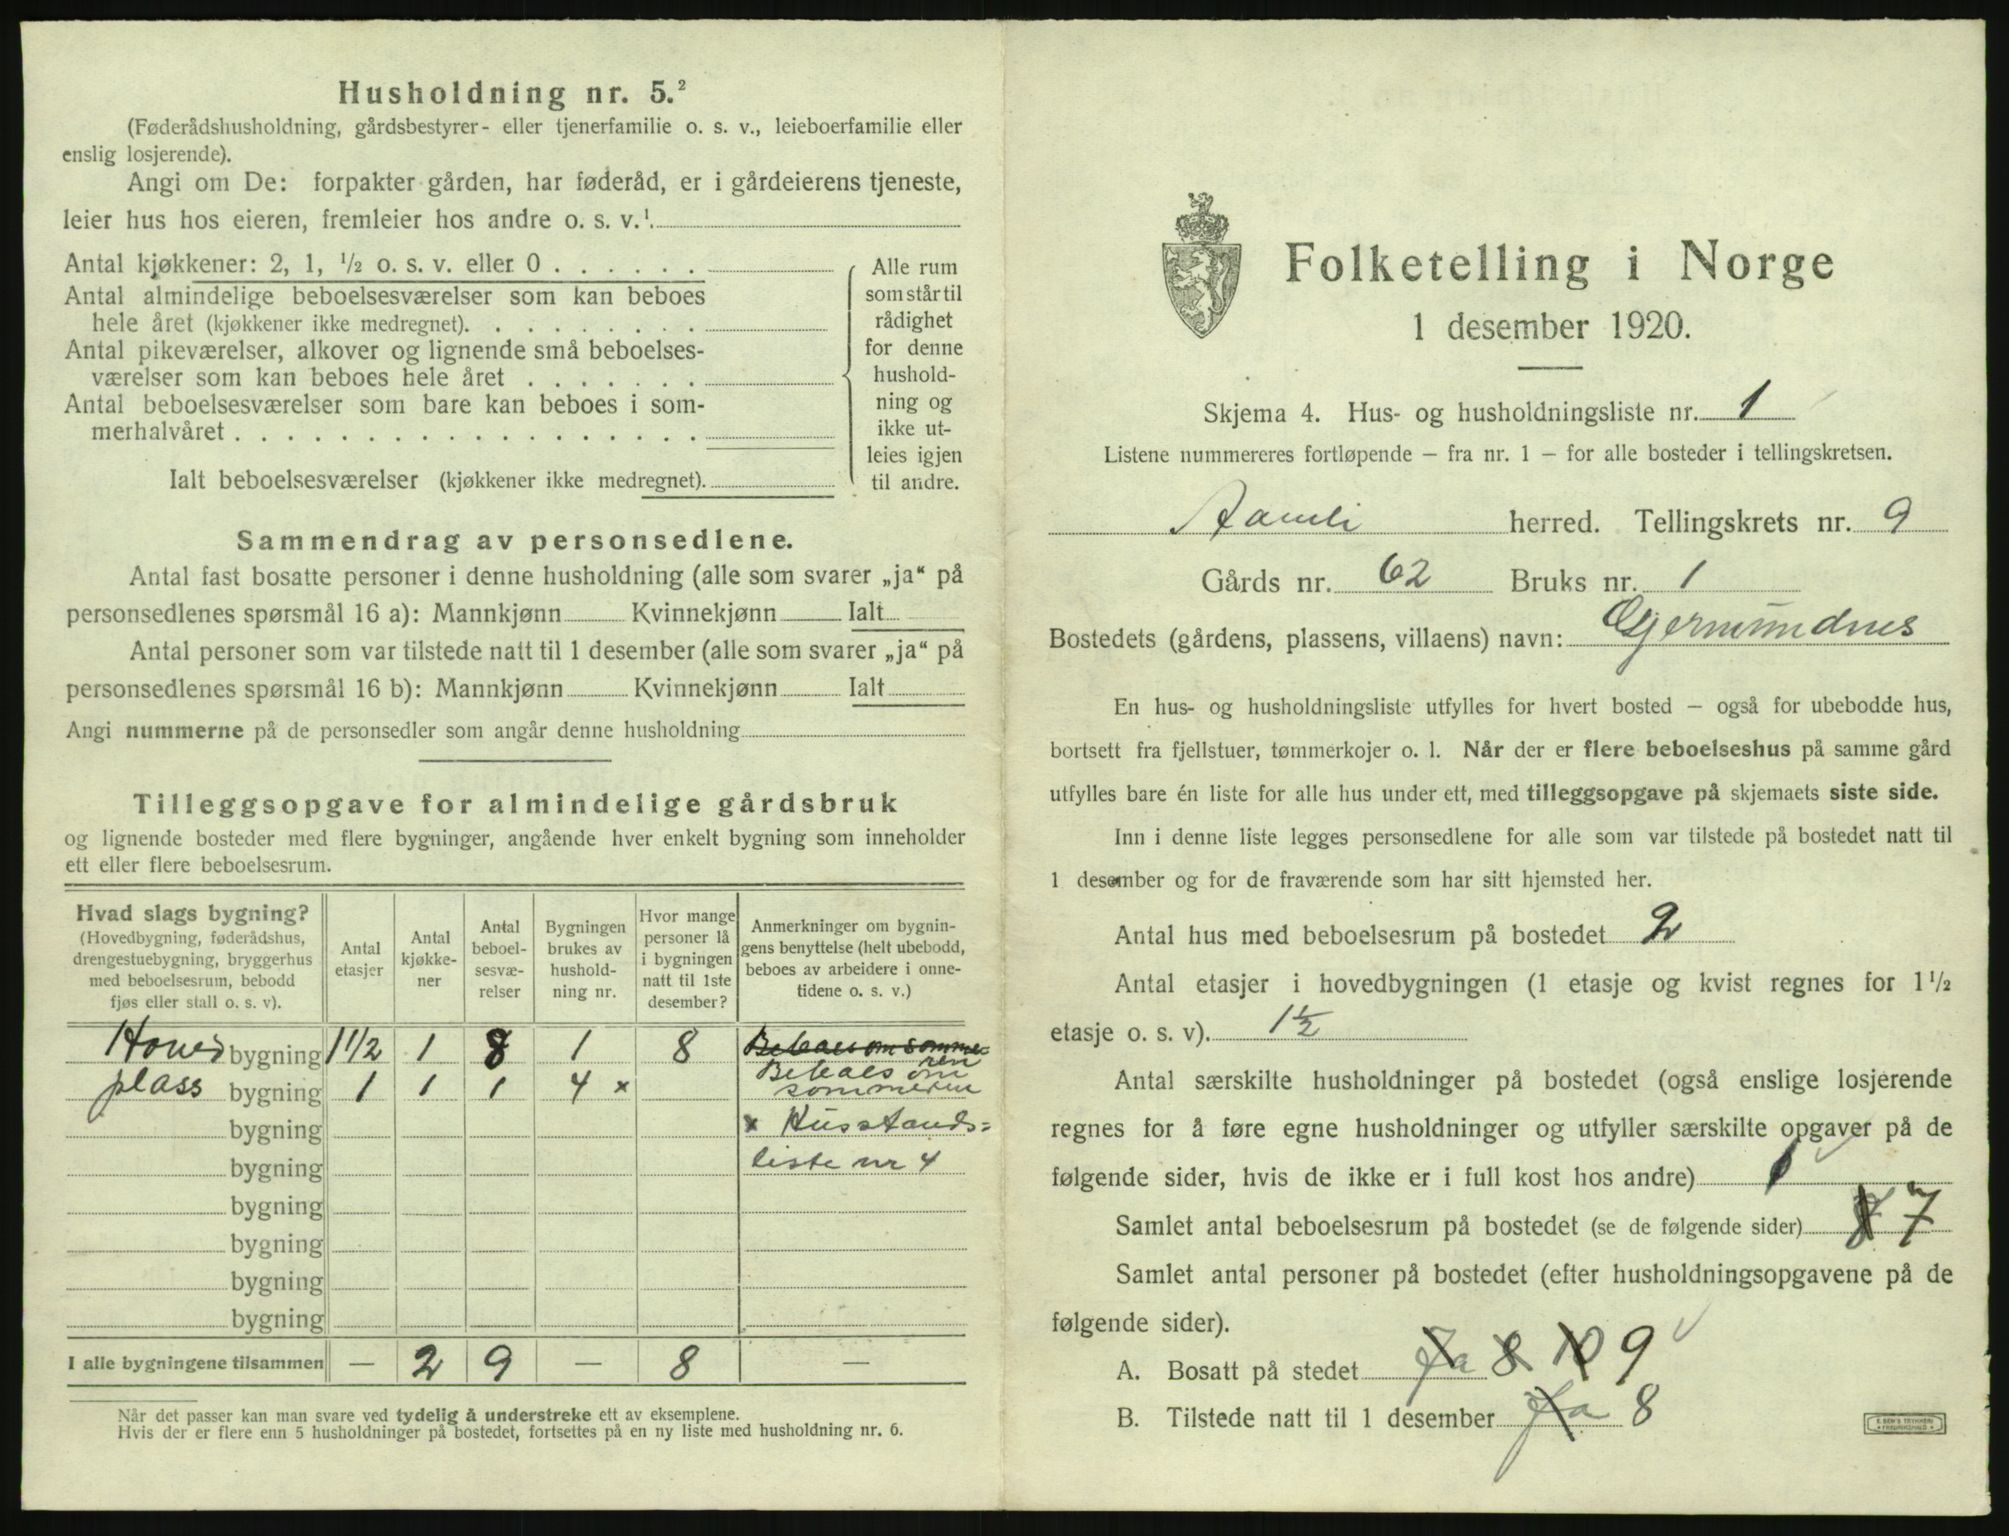 Husholdning nr. 5.²
(Føderådshusholdning, gårdsbestyrer- eller tjenerfamilie o. s. v., leieboerfamilie eller
enslig losjerende).
Angi om De: forpakter gården, har føderåd, er i gårdeierens tjeneste,
leier hus hos eieren, fremleier hos andre o. s. v.¹
Antal kjøkkener: 2, 1, ½ o. s. v. eller 0 . . . . . .
Antal almindelige beboelsesværelser som kan beboes
hele året (kjøkkener ikke medregnet). . . . . . . . .
Antal pikeværelser, alkover og lignende små beboelses-
værelser som kan beboes hele året . . . . . . .
Antal beboelsesværelser som bare kan beboes i som-
merhalvåret . . . . . . . . . . . . . . . . . .
Ialt beboelsesværelser (kjøkkener ikke medregnet).
Alle rum
som står til
rådighet
for denne
hushold-
ning og
ikke ut-
leies igjen
til andre.
Sammendrag av personsedlene.
Antal fast bosatte personer i denne husholdning (alle som svarer „ja“ på
personsedlenes spørsmål 16 a): Mannkjønn Kvinnekjønn Ialt
Antal personer som var tilstede natt til 1 desember (alle som svarer „ja“ på
personsedlenes spørsmål 16 b): Mannkjønn Kvinnekjønn Ialt
Angi nummerne på de personsedler som angår denne husholdning
Tilleggsopgave for almindelige gårdsbruk
og lignende bosteder med flere bygninger, angående hver enkelt bygning som inneholder
ett eller flere beboelsesrum.
Hvad slags bygning?
(Hovedbygning, føderådshus,
drengestuebygning, bryggerhus
med beboelsesrum, bebodd
fjøs eller stall o. s. v).
Antal
etasjer
Antal
kjøkke-
ner
Antal
beboel-
sesvæ-
relser
Bygningen
brukes av
hushold-
ning nr.
Hvor mange
personer lå
i bygningen
natt til 1ste
desember?
Anmerkninger om bygnin-
gens benyttelse (helt ubebodd,
beboes av arbeidere i onne-
tidene o. s. v.)
Hoved bygning 1 1/2 1 8 1 8 Beboes om somme-
ren
plass bygning 1 1 1 4 x Beboes om
sommeren
bygning x Husstands=
bygning liste nr 4
bygning
bygning
bygning
bygning
I alle bygningene tilsammen — 2 9 — 8 —
Når det passer kan man svare ved tydelig å understreke ett av eksemplene.
Hvis der er flere enn 5 husholdninger på bostedet, fortsettes på en ny liste med husholdning nr. 6.
Folketelling i Norge
1 desember 1920.
Skjema 4. Hus- og husholdningsliste nr. 1
Listene nummereres fortløpende — fra nr. 1 — for alle bosteder i tellingskretsen.
Aamli herred. Tellingskrets nr. 9
Gårds nr. 62 Bruks nr. 1
Bostedets (gårdens, plassens, villaens) navn: Gjermundnes
En hus- og husholdningsliste utfylles for hvert bosted — også for ubebodde hus,
bortsett fra fjellstuer, tømmerkojer o. l. Når der er flere beboelseshus på samme gård
utfylles bare én liste for alle hus under ett, med tilleggsopgave på skjemaets siste side.
Inn i denne liste legges personsedlene for alle som var tilstede på bostedet natt til
1 desember og for de fraværende som har sitt hjemsted her.
Antal hus med beboelsesrum på bostedet 2
Antal etasjer i hovedbygningen (1 etasje og kvist regnes for 1½
etasje o. s. v). 1½
Antal særskilte husholdninger på bostedet (også enslige losjerende
regnes for å føre egne husholdninger og utfyller særskilte opgaver på de
følgende sider, hvis de ikke er i full kost hos andre) 1
Samlet antal beboelsesrum på bostedet (se de følgende sider) 8 7
Samlet antal personer på bostedet (efter husholdningsopgavene på de
følgende sider).
A. Bosatt på stedet Ja 8 10 9
B. Tilstede natt til 1 desember Ja 8